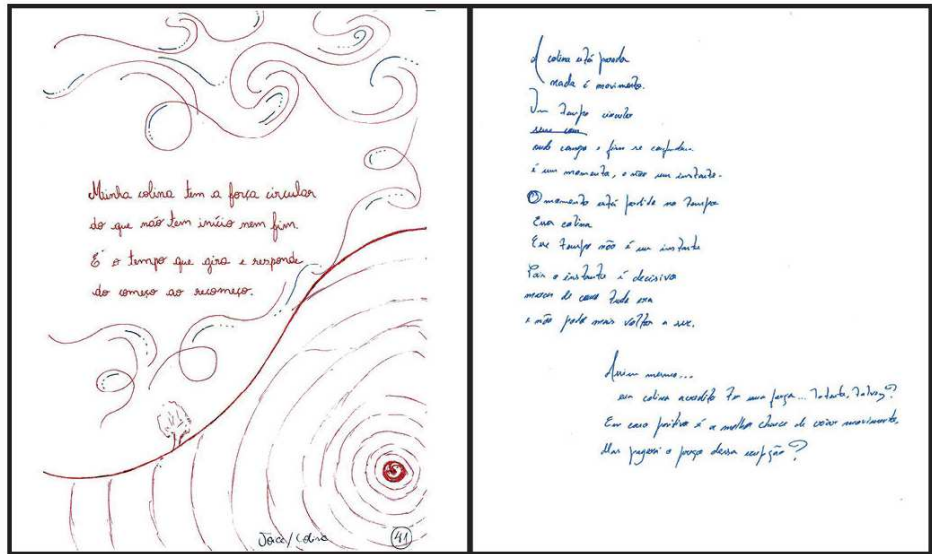 Minha colina tem a força circular
do que não tem início nem fim.
É o tempo que gira e responde
do começo ao recomeço.
41
A colina está parada
nada é movimento.
Um tempo circular
onde começo e fim se confundem
é um momento, e não um instante.
O momento está partido no tempo
Essa colina
Esse tempo não é um instante
Pois o instante é decisivo
marca de como tudo era
e não pode mais voltar a ser.
Assim mesmo...
essa colina acredito ter uma força... Talvez?
Em caso positivo é a melhor chance de criar movimento.
Mas pagará o preço dessa